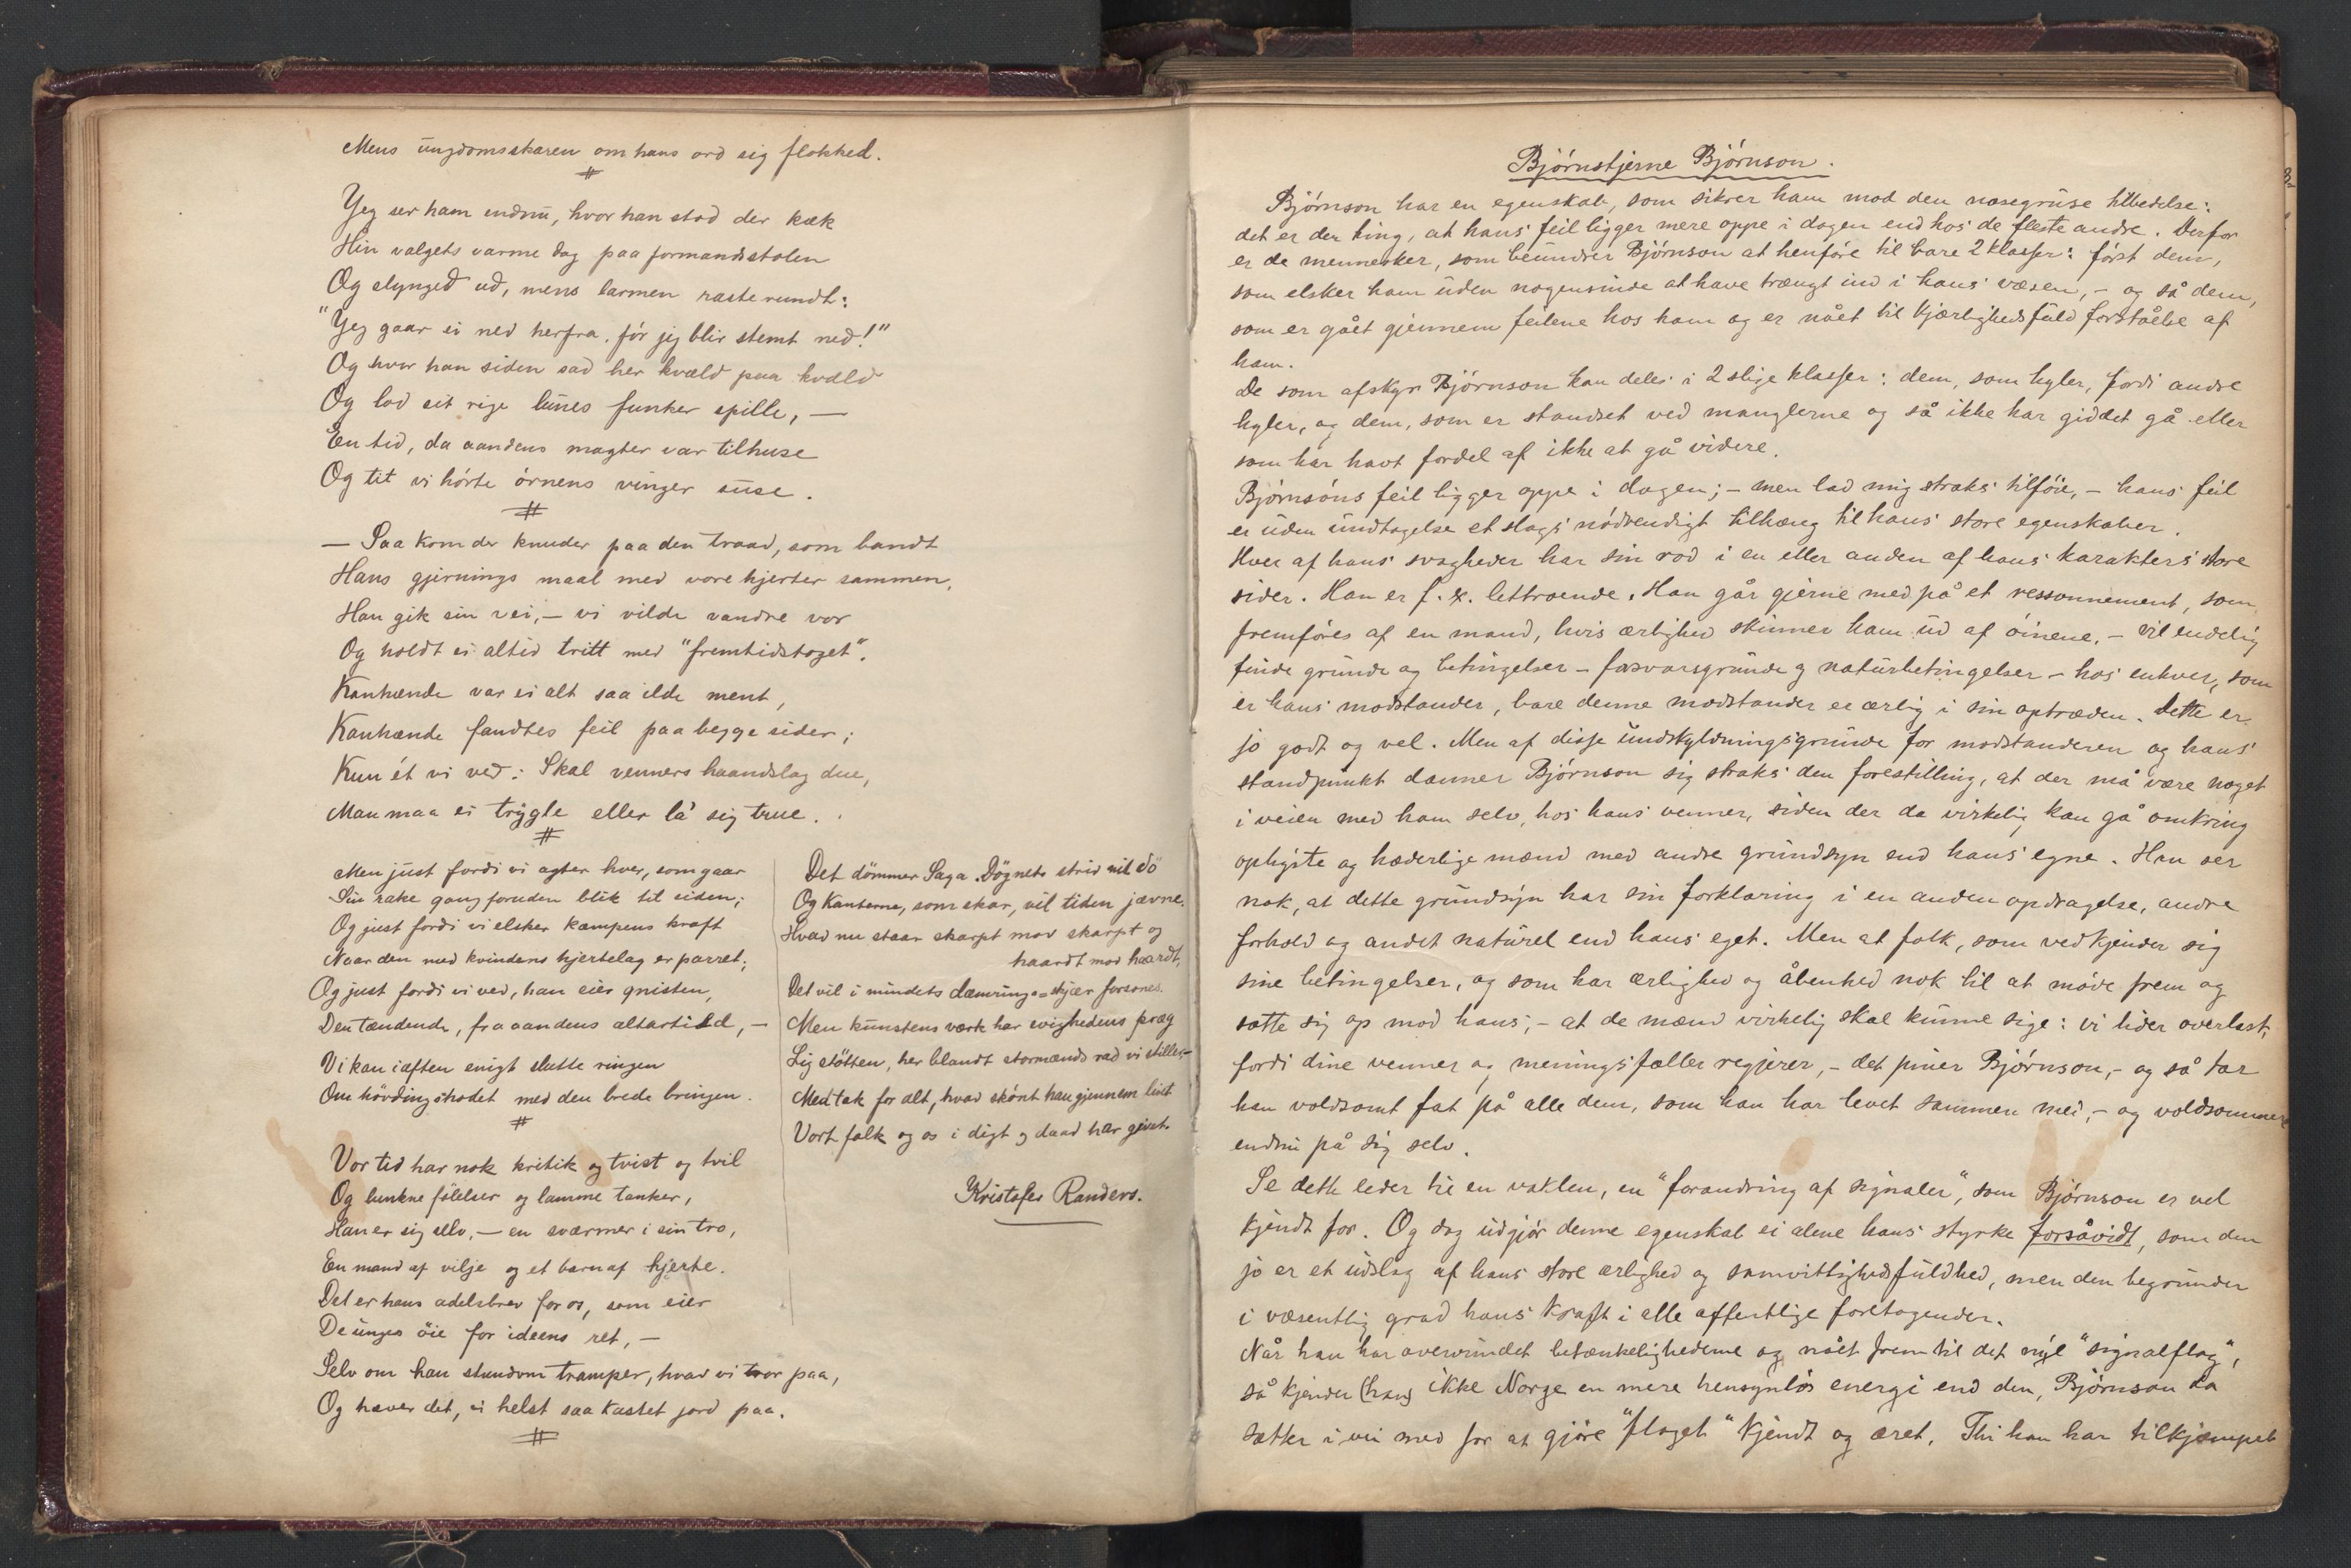 Mens ungdomsskaren om hans ord sig flokked.
#
Jeg ser ham endnu, hvor han stod der kæk
Hin valgets varme dag paa formandsstolen
Og slynged ud, mens larmen raste rundt:
"Jeg gaar ei ned herfra, før jeg blir stemt ned!"
Og hvor han siden sad her kvæld paa kvæld
Og lod sit rige lunes funker spille, —
En tid, da aandens magter var tilhuse
Og tit vi hørte ørnens vinger suse.
#
— Saa kom der knuder paa den traad, som bandt
Hans gjernings maal med vore hjerter sammen,
Han gik sin vei, — vi vilde vandre vor
Og holdt ei altid tritt med "fremtidstoget".
Kanhænde var ei alt saa ilde ment,
Kanhænde fandtes feil paa begge sider;
Kun ét vi ved: Skal venners haandslag due,
Man maa ei trygle eller la' sig true.
#
Men just fordi vi agter hver, som gaar
Sin rake gang foruden blik til siden;
Og just fordi vi elsker kæmpens kraft
Naar den med kvindens hjertelag er parret;
Og just fordi vi ved, han eier gnisten,
Den tændende, fra aandens altarild, —
Vi kan iaften enigt slutte ringen
Om høvdingshodet med den brede bringen.
#
Vor tid har nok kritik og tvist og tvil
Og lunkne følelser og lamme tanker,
Han er sig selv, — en sværmer i sin tro,
En mand af vilje og et barn af hjerte.
Det er hans adelsbrev for os, som eier
De unges öie for ideens ret, —
Selv om han stundom tramper, hvad vi tror paa,
Og hæver det, vi helst saa kastet jord paa.
#
Det dömmer Saga. Dögnets strid vil dö
Og Kanterne, som skar, vil tiden jævne.
Hvad nu staar skarpt mod skarpt og
haardt mod haardt,
Det vil i mindets dæmrings=skjær forsones.
Men kunstens værk har evighedens præg
Lig stötten, her blandt stormænds rad vi stiller, —
Med tak for alt, hvad skønt han gjennem livet
Vort folk og os i digt og daad har givet.
Kristofer Randers.
Bjørnstjerne Bjørnson.
Bjørnson har en egenskab, som sikrer ham mod den næsegruse tilbedelse:
det er den ting, at hans feil ligger mere oppe i dagen end hos de fleste andre. Derfor
er de mennesker, som beundrer Bjørnson at henføre til bare 2 klasser: først dem,
som elsker ham uden nogensinde at have trængt ind i hans væsen, – og så dem,
som er gået gjennem feilene hos ham og er nået til kjærlighedsfuld forståelse af
ham.
De som afskyr Bjørnson kan deles i 2 slige klasser: dem, som hyler, fordi andre
hyler, og dem, som er standset ved manglerne og så ikke har giddet gå eller
som har havt fordel af ikke at gå videre.
Bjørnsøns feil ligger oppe i dagen; – men lad mig straks tilføie, – hans feil
er uden undtagelse et slags nødvendigt tilhæng til hans store egenskaber.
Hver af hans svagheder har sin rod i en eller anden af hans karakters store
sider. Han er f. ex. lettroende. Han går gjerne med på et ressonnement, som
fremføres af en mand, hvis ærlighed skinner ham ud af øinene, – vil endelig
finde grunde og betingelser – forsvarsgrunde og naturbetingelser – hos enhver, som
er hans modstander, bare denne modstander er ærlig i sin optræden. Dette er
jo godt og vel. Men af disse undskyldningsgrunde for modstanderen og hans
standpunkt danner Bjørnson sig straks den forestilling, at der må være noget
i veien med ham selv, hos hans venner, siden der da virkelig kan gå omkring
oplyste og hæderlige mænd med andre grundsyn end hans egne. Han ser
nok, at dette grundsyn har sin forklaring i en anden opdragelse, andre
forhold og andet naturel end hans eget. Men at folk, som vedkjender sig
sine betingelser, og som har ærlighed og åbenhed nok til at møde frem og
sætte sig op mod hans, – at de mænd virkelig skal kunne sige: vi lider overlast,
fordi dine venner og meningsfæller regjerer, – det piner Bjørnson, – og så tar
han voldsomt fat på alle dem, som han har levet sammen med, – og voldsommere
endnu på sig selv.
Se dette leder til en vaklen, en "forandring af signaler", som Bjørnson er vel
kjendt for. Og dog udgjør denne egenskab ei alene hans styrke forsåvidt, som den
jo er et udslag af hans store ærlighed og samvittighedsfuldhed, men den begrunder
i væsentlig grad hans kraft i alle offentlige foretagender.
Når han har overvundet betænkelighederne og nået frem til det nye "signalflag",
så kjender (han) ikke Norge en mere hensynløs energi end den, Bjørnson da
sætter i vei med for at gjøre "flaget" kjendt og æret. Thi han har tilkjæmpet